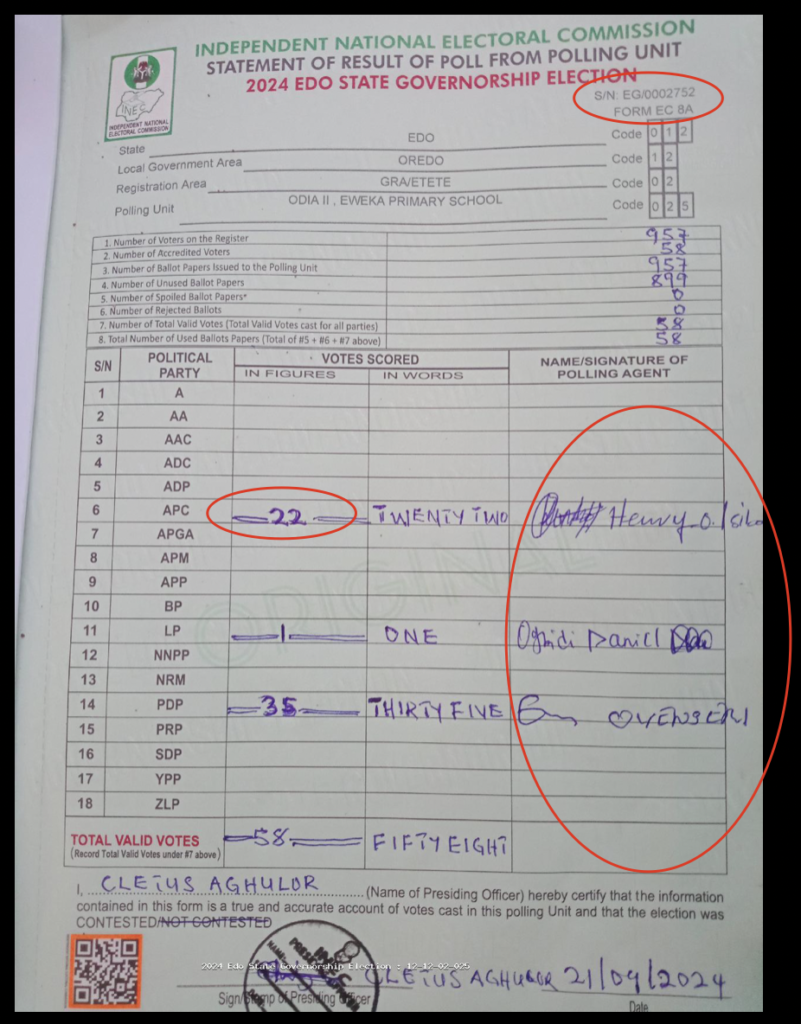 INDEPENDENT NATIONAL ELECTORAL COMMISSION
STATEMENT OF RESULT OF POLL FROM POLLING UNIT
2024 EDO STATE GOVERNORSHIP ELECTION
S/N: EG/0002752
FORM EC 8A
INEC
INDEPENDENT NATIONAL
ELECTORAL COMMISSION
State EDO Code 0 1 2
Local Government Area OREDO Code 1 2
Registration Area GRA/ETETE Code 0 2
Polling Unit ODIA II , EWEKA PRIMARY SCHOOL Code 0 2 5
1. Number of Voters on the Register 957
2. Number of Accredited Voters 58
3. Number of Ballot Papers Issued to the Polling Unit 957
4. Number of Unused Ballot Papers 899
5. Number of Spoiled Ballot Papers* 0
6. Number of Rejected Ballots 0
7. Number of Total Valid Votes (Total Valid Votes cast for all parties) 58
8. Total Number of Used Ballots Papers (Total of #5 + #6 + #7 above) 58
S/N POLITICAL PARTY VOTES SCORED NAME/SIGNATURE OF POLLING AGENT
IN FIGURES IN WORDS
1 A
2 AA
3 AAC
4 ADC
5 ADP
6 APC 22 TWENTY TWO Henry O.
7 APGA
8 APM
9 APP
10 BP
11 LP 1 ONE Daniel
12 NNPP
13 NRM
14 PDP 35 THIRTY FIVE
15 PRP
16 SDP
17 YPP
18 ZLP
ORIGINAL
TOTAL VALID VOTES 58 FIFTY EIGHT
(Record Total Valid Votes under #7 above)
I, CLETUS AGHULOR (Name of Presiding Officer) hereby certify that the information
contained in this form is a true and accurate account of votes cast in this polling Unit and that the election was
CONTESTED/NOT CONTESTED
2024 Edo State Governorship Election : 12-12-02-025
CLETUS AGHULOR 21/09/2024
Sign/Stamp of Presiding Officer Date